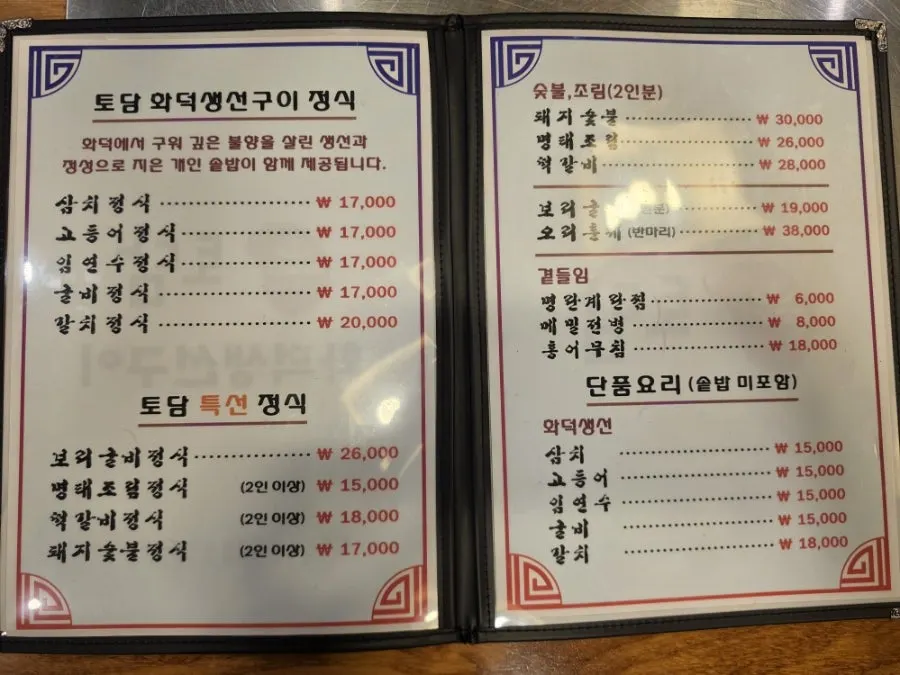 토담 화덕생선구이 정식
화덕에서 구워 깊은 불향을 살린 생선과
정성으로 지은 개인 솥밥이 함께 제공됩니다.
삼치정식 ₩ 17,000
고등어정식 ₩ 17,000
임연수정식 ₩ 17,000
굴비정식 ₩ 17,000
갈치정식 ₩ 20,000
토담 특선 정식
보리굴비정식 ₩ 26,000
명태조림정식 (2인 이상) ₩ 15,000
떡갈비정식 (2인 이상) ₩ 18,000
돼지숯불정식 (2인 이상) ₩ 17,000
숯불,조림(2인분)
돼지숯불 ₩ 30,000
명태조림 ₩ 26,000
떡갈비 ₩ 28,000
보리굴 ₩ 19,000
오리훈제 (반마리) ₩ 38,000
곁들임
명란계란찜 ₩ 6,000
메밀전병 ₩ 8,000
홍어무침 ₩ 18,000
단품요리 (솥밥 미포함)
화덕생선
삼치 ₩ 15,000
고등어 ₩ 15,000
임연수 ₩ 15,000
굴비 ₩ 15,000
갈치 ₩ 18,000